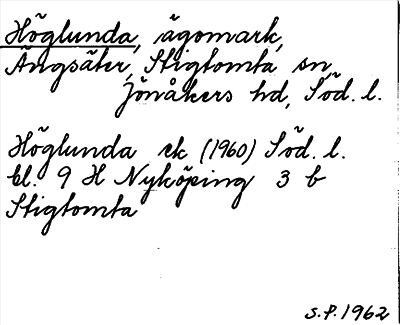 Höglunda, ägomark,
Ängsäter, Stigtomta sn,
Jönåkers hd, Söd. l.
Höglunda ek (1960) Söd. l.
bl. 9 H Nyköping 3 b
Stigtomta
S.P. 1962